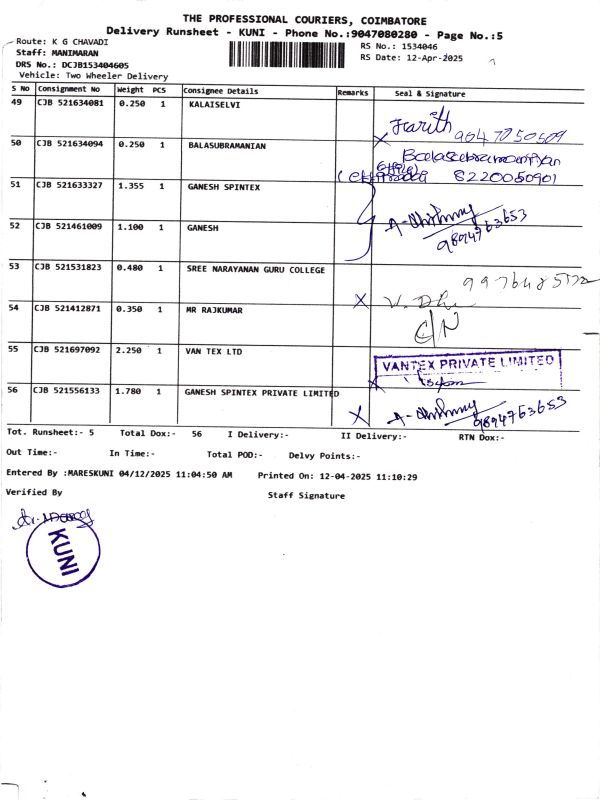 THE PROFESSIONAL COURIERS, COIMBATORE
Delivery Runsheet - KUNI - Phone No.:9047080280 - Page No.:5
Route: K G CHAVADI
RS No.: 1534046
Staff: MANIMARAN
RS Date: 12-Apr-2025
DRS No.: DCJB153404605
Vehicle: Two Wheeler Delivery
S No Consignment No Weight PCS Consignee Details Remarks Seal & Signature
49 CJB 521634081 0.250 1 KALAISELVI
Harith 9047050509
50 CJB 521634094 0.250 1 BALASUBRAMANIAN
Balasubramaniyan
8220050901
51 CJB 521633327 1.355 1 GANESH SPINTEX
52 CJB 521461009 1.100 1 GANESH
9894763653
53 CJB 521531823 0.480 1 SREE NARAYANAN GURU COLLEGE
54 CJB 521412871 0.350 1 MR RAJKUMAR
C/N
55 CJB 521697092 2.250 1 VAN TEX LTD
VANTEX PRIVATE LIMITED
56 CJB 521556133 1.780 1 GANESH SPINTEX PRIVATE LIMITED
9894763653
Tot. Runsheet:- 5 Total Dox:- 56 I Delivery:- II Delivery:- RTN Dox:-
Out Time:- In Time:- Total POD:- Delvy Points:-
Entered By :MARESKUNI 04/12/2025 11:04:50 AM Printed On: 12-04-2025 11:10:29
Verified By Staff Signature
KUNI